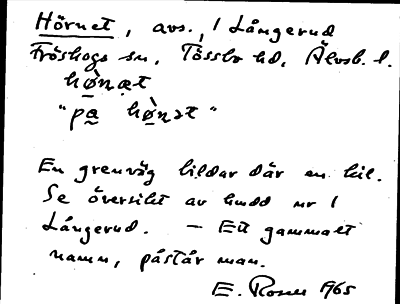 Hörnet, avs., 1 Långerud
Fröskogs sn, Tössbo hd, Älvsb. l.
hø̀ṇət
"pa hø̀ṇət"
En grenväg bildar där en kil.
Se översikt av hudd nr 1
Långerud. — Ett gammalt
namn, påstår man.
E. Rosen 1965